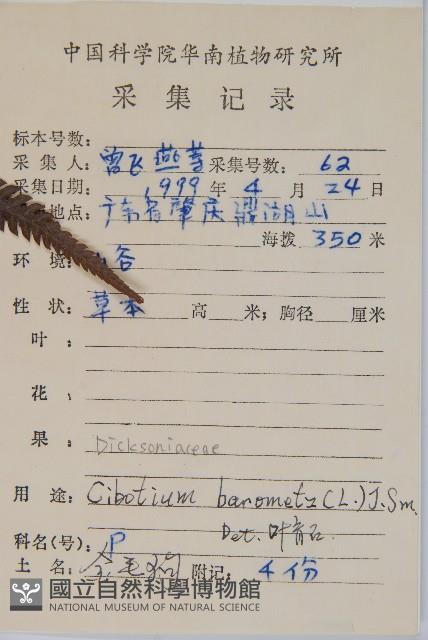 中国科学院华南植物研究所
采集记录
标本号数:
采集人: 曾飞燕等 采集号数: 62
采集日期: 1999 年 4 月 24 日
地点: 广东省肇庆鼎湖山
海拨 350 米
环境: 谷
性状: 草本 高 米; 胸径 厘米
叶:
花:
果: Dicksoniaceae
用途: Cibotium barometz (L.) J.Sm.
Det. 叶育石
科名(号): P
土名: 金毛狗 附记: 4份
國立自然科學博物館
NATIONAL MUSEUM OF NATURAL SCIENCE